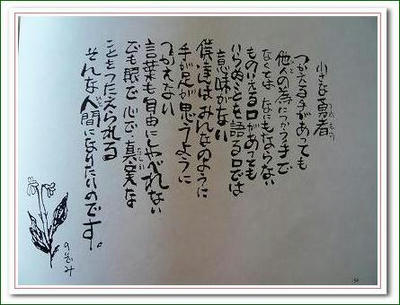 小さな勇者
つかえる手があっても
他人の為につかう手で
なくては なにもならない
ものいえる口があっても
いらぬことを語る口では
意味がない
僕達はみんなのように
手が足が思うように
つかえない
言葉も自由にしゃべれない
でも眼で心で真実な
ことをつたえられる
そんな人間になりたいのです。
のぞみ